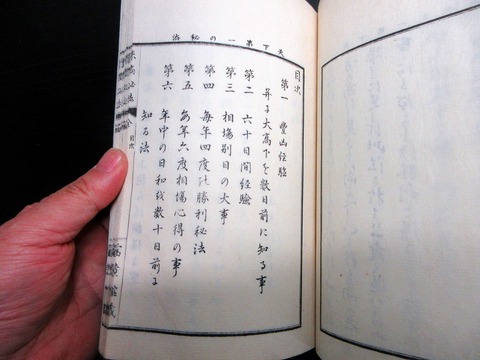 天下第一の秘法
目次
第一 豊山経験
并に大高下を数日前に知る事
第二 六十日間経験
第三 相場 目の大事
第四 毎年四度の勝利秘法
第五 毎年六度相場心得の事
第六 年中の日和を数十日前に
知る法
目次